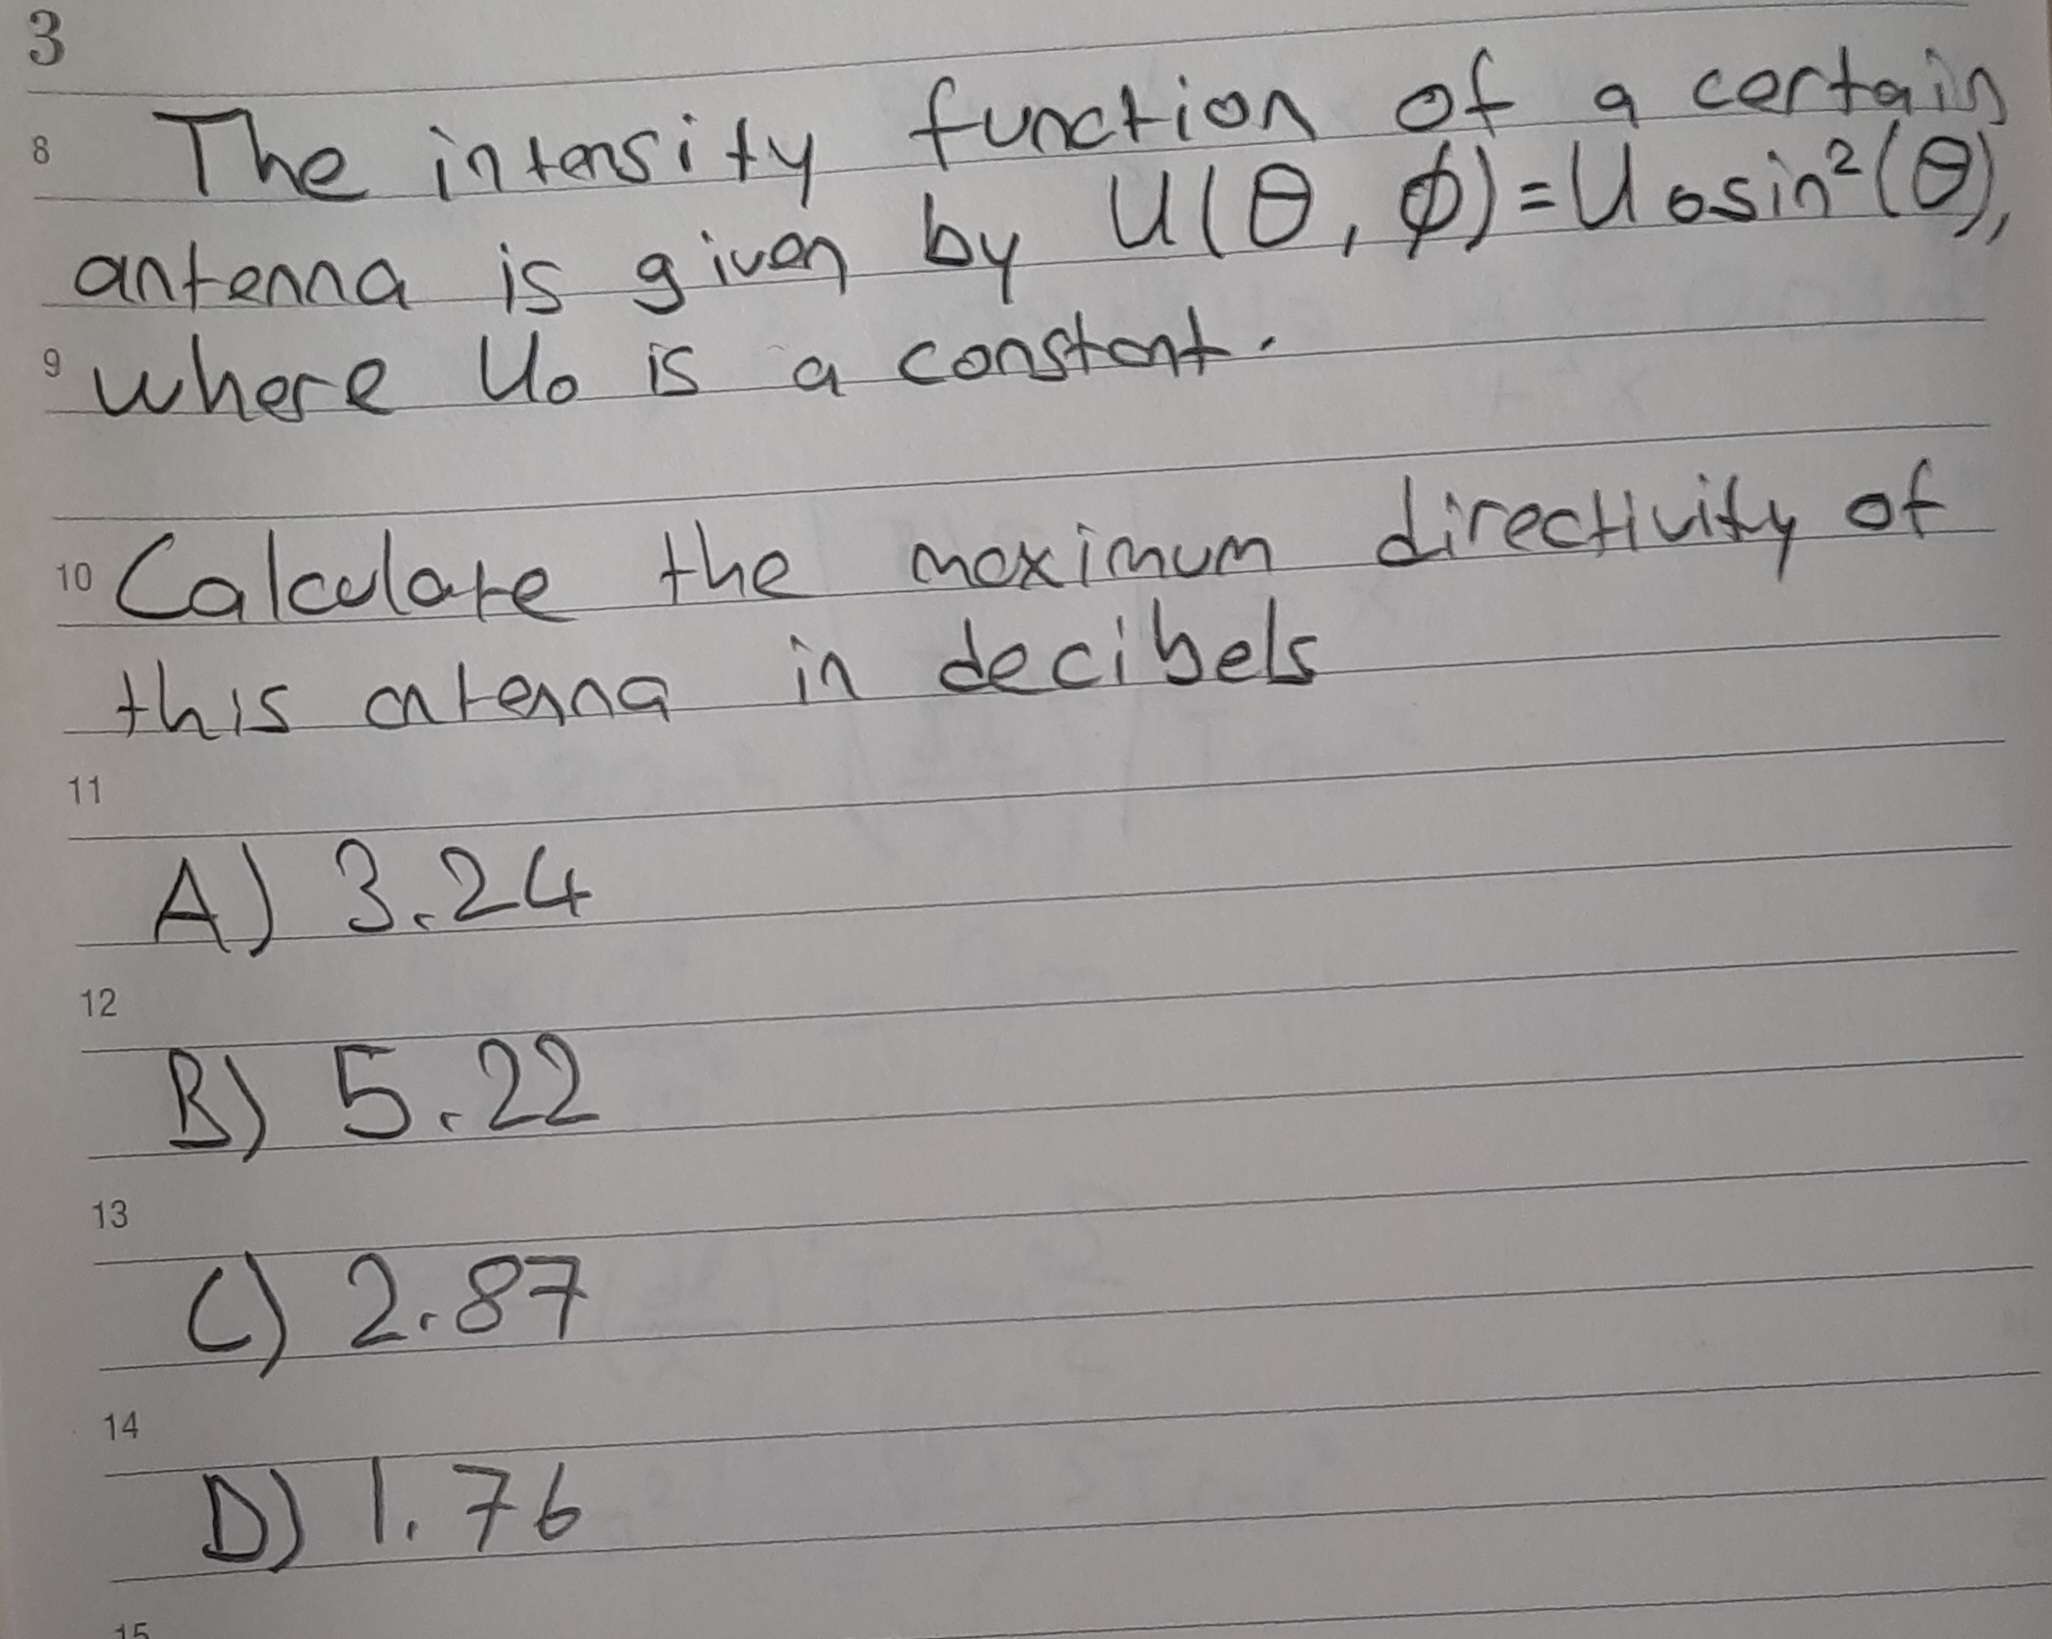 3
8 The intensity function of a certain
antenna is given by U(θ, ϕ)=U0sin²(θ),
9 where U0 is a constant.
10 Calculate the maximum directivity of
this antenna in decibels
11
A) 3.24
12
B) 5.22
13
C) 2.87
14
D) 1.76
15